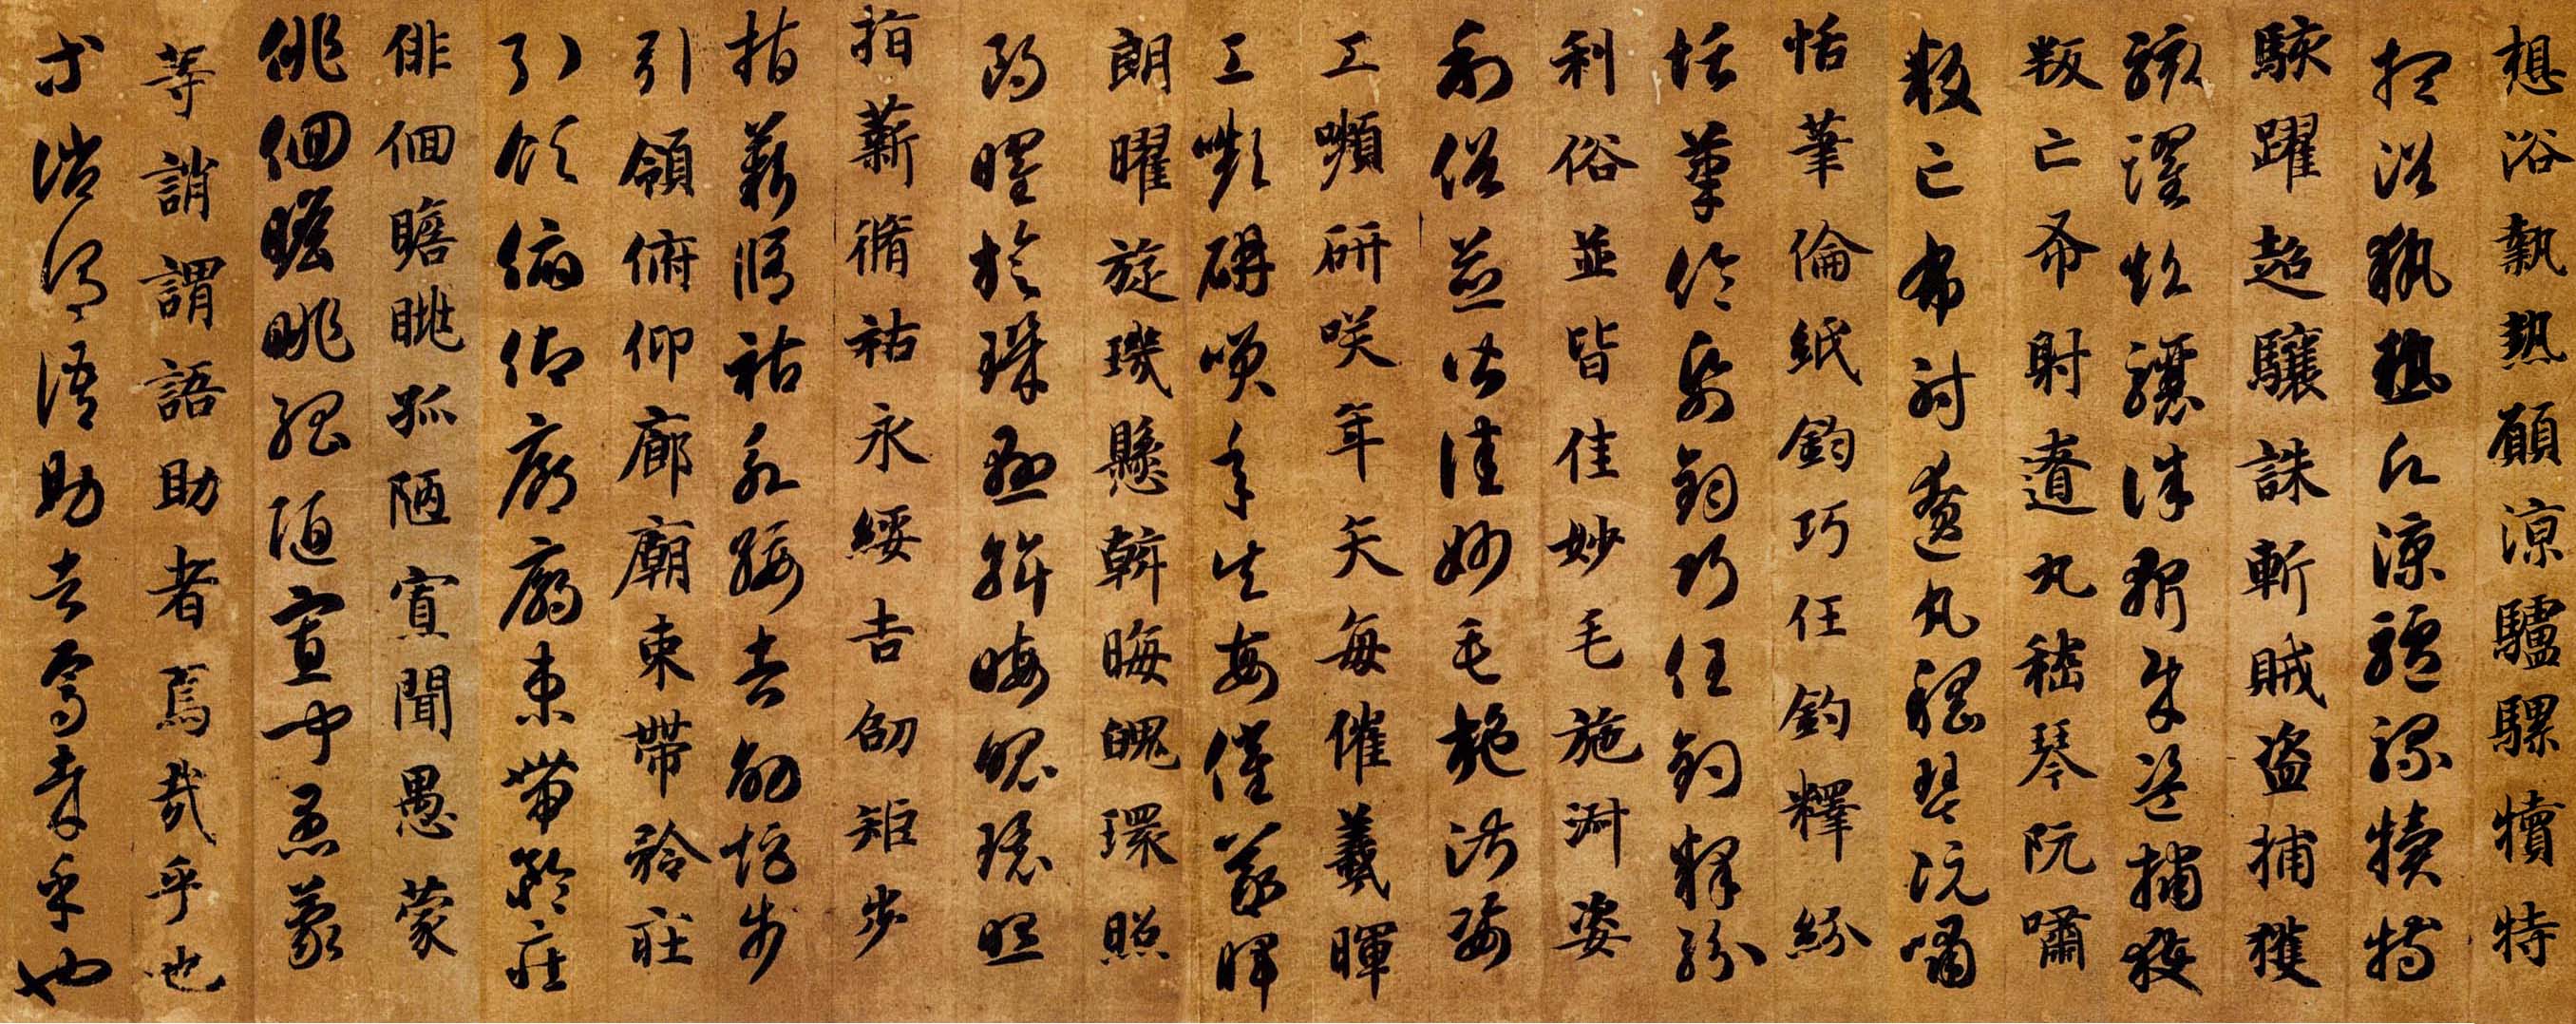 想浴執熱願涼驢騾犢特
想浴執熱願涼驢騾犢特
駭躍超驤誅斬賊盜捕獲
駭躍超驤誅斬賊盜捕獲
叛亡布射遼丸嵇琴阮嘯
叛亡布射遼丸嵇琴阮嘯
恬筆倫紙鈞巧任釣釋紛
恬筆倫紙鈞巧任釣釋紛
利俗並皆佳妙毛施淑姿
利俗並皆佳妙毛施淑姿
工嚬研咲年矢每催羲暉
工嚬研咲年矢每催羲暉
朗曜旋璣懸斡晦魄環照
朗曜旋璣懸斡晦魄環照
指薪脩祜永綏吉劭矩步
指薪脩祜永綏吉劭矩步
引領俯仰廊廟束帶矜莊
引領俯仰廊廟束帶矜莊
俳佪瞻眺孤陋寡聞愚蒙
俳佪瞻眺孤陋寡聞愚蒙
等誚謂語助者焉哉乎也
等誚謂語助者焉哉乎也